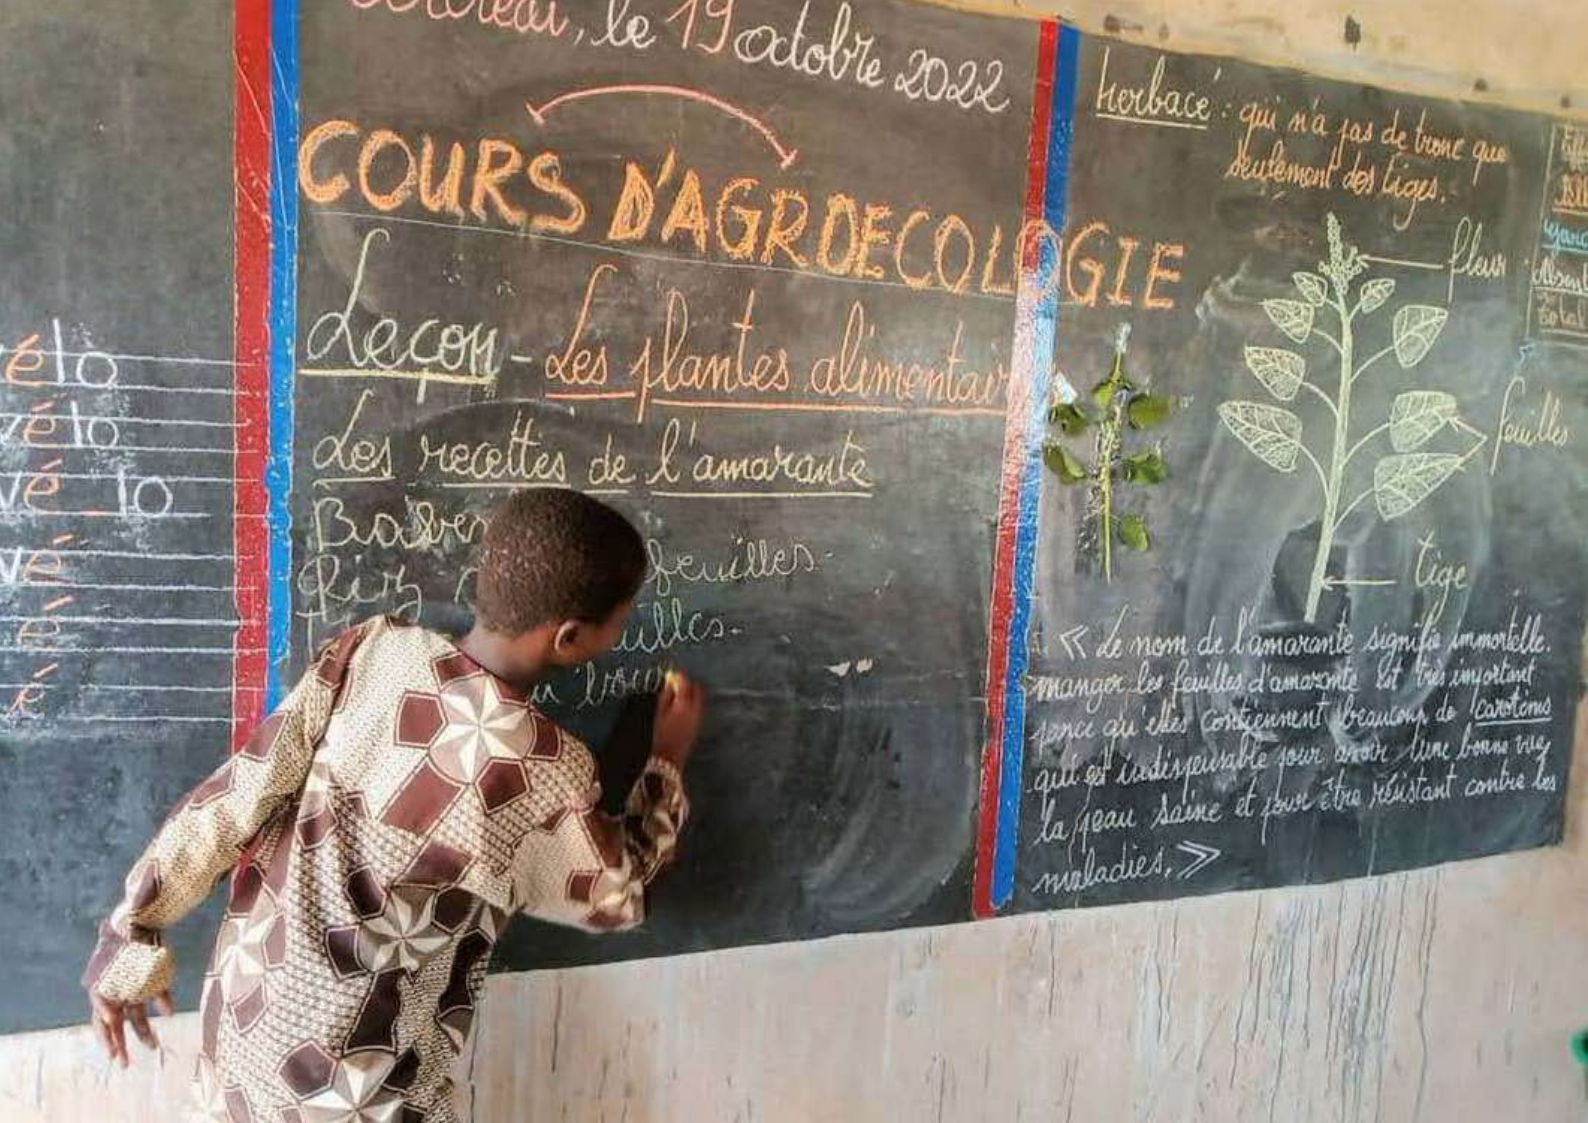 élo
vélo
vé lo
vé
é
é
le 19 octobre 2022
COURS D'AGROECOLOGIE
Leçon - Les plantes alimentair
Les recettes de l'amarante
Riz feuilles.
herbacé : qui n'a pas de tronc que
seulement des tiges.
fleur
feuilles
tige
« Le nom de l'amarante signifie immortelle.
manger les feuilles d'amarante est très important
parce qu'elles contiennent beaucoup de carotène
qui est indispensable pour avoir une bonne vue,
la peau saine et pour être résistant contre les
maladies. »